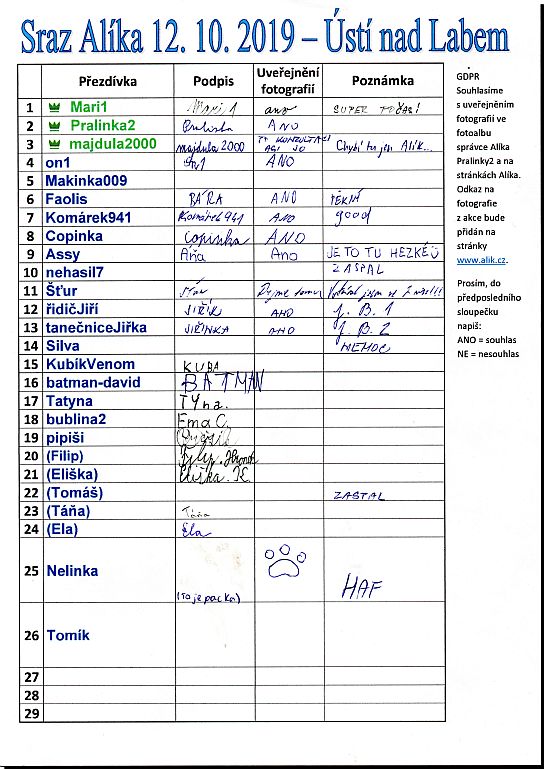 Sraz Alíka 12. 10. 2019 – Ústí nad Labem
Přezdívka Podpis Uveřejnění fotografií Poznámka
1 Mari1 Mari1 ano SUPER POČASÍ
2 Pralinka2 Pralinka ANO
3 majdula2000 majdula2000 PO KONZULTACI ASI JO Chybí tu jen Alík...
4 on1 on1 ANO
5 Makinka009
6 Faolis BÁRA ANO PĚKNÝ
7 Komárek941 Komárek 941 ANO good
8 Copinka Copinka ANO
9 Assy Áňa Ano JE TO TU HEZKÉ
10 nehasil7 ZASPAL
11 Šťur Šťur Dejme tomu
12 řidičJiří JIŘÍK ANO J. B. 1
13 tanečniceJiřka JIŘINKA ANO J. B. 2
14 Silva NEMOC
15 KubíkVenom KUBA
16 batman-david BATMAN
17 Tatyna TYna.
18 bublina2 Ema C.
19 pipiši
20 (Filip) Filip
21 (Eliška) Eliška. K.
22 (Tomáš) ZASPAL
23 (Táňa) Táňa
24 (Ela) Ela
25 Nelinka (to je packa) HAF
26 Tomík
27
28
29
GDPR
Souhlasíme
s uveřejněním
fotografií ve
fotoalbu
správce Alíka
Pralinky2 a na
stránkách Alíka.
Odkaz na
fotografie
z akce bude
přidán na
stránky
www.alik.cz.
Prosím, do
předposledního
sloupečku
napiš:
ANO = souhlas
NE = nesouhlas